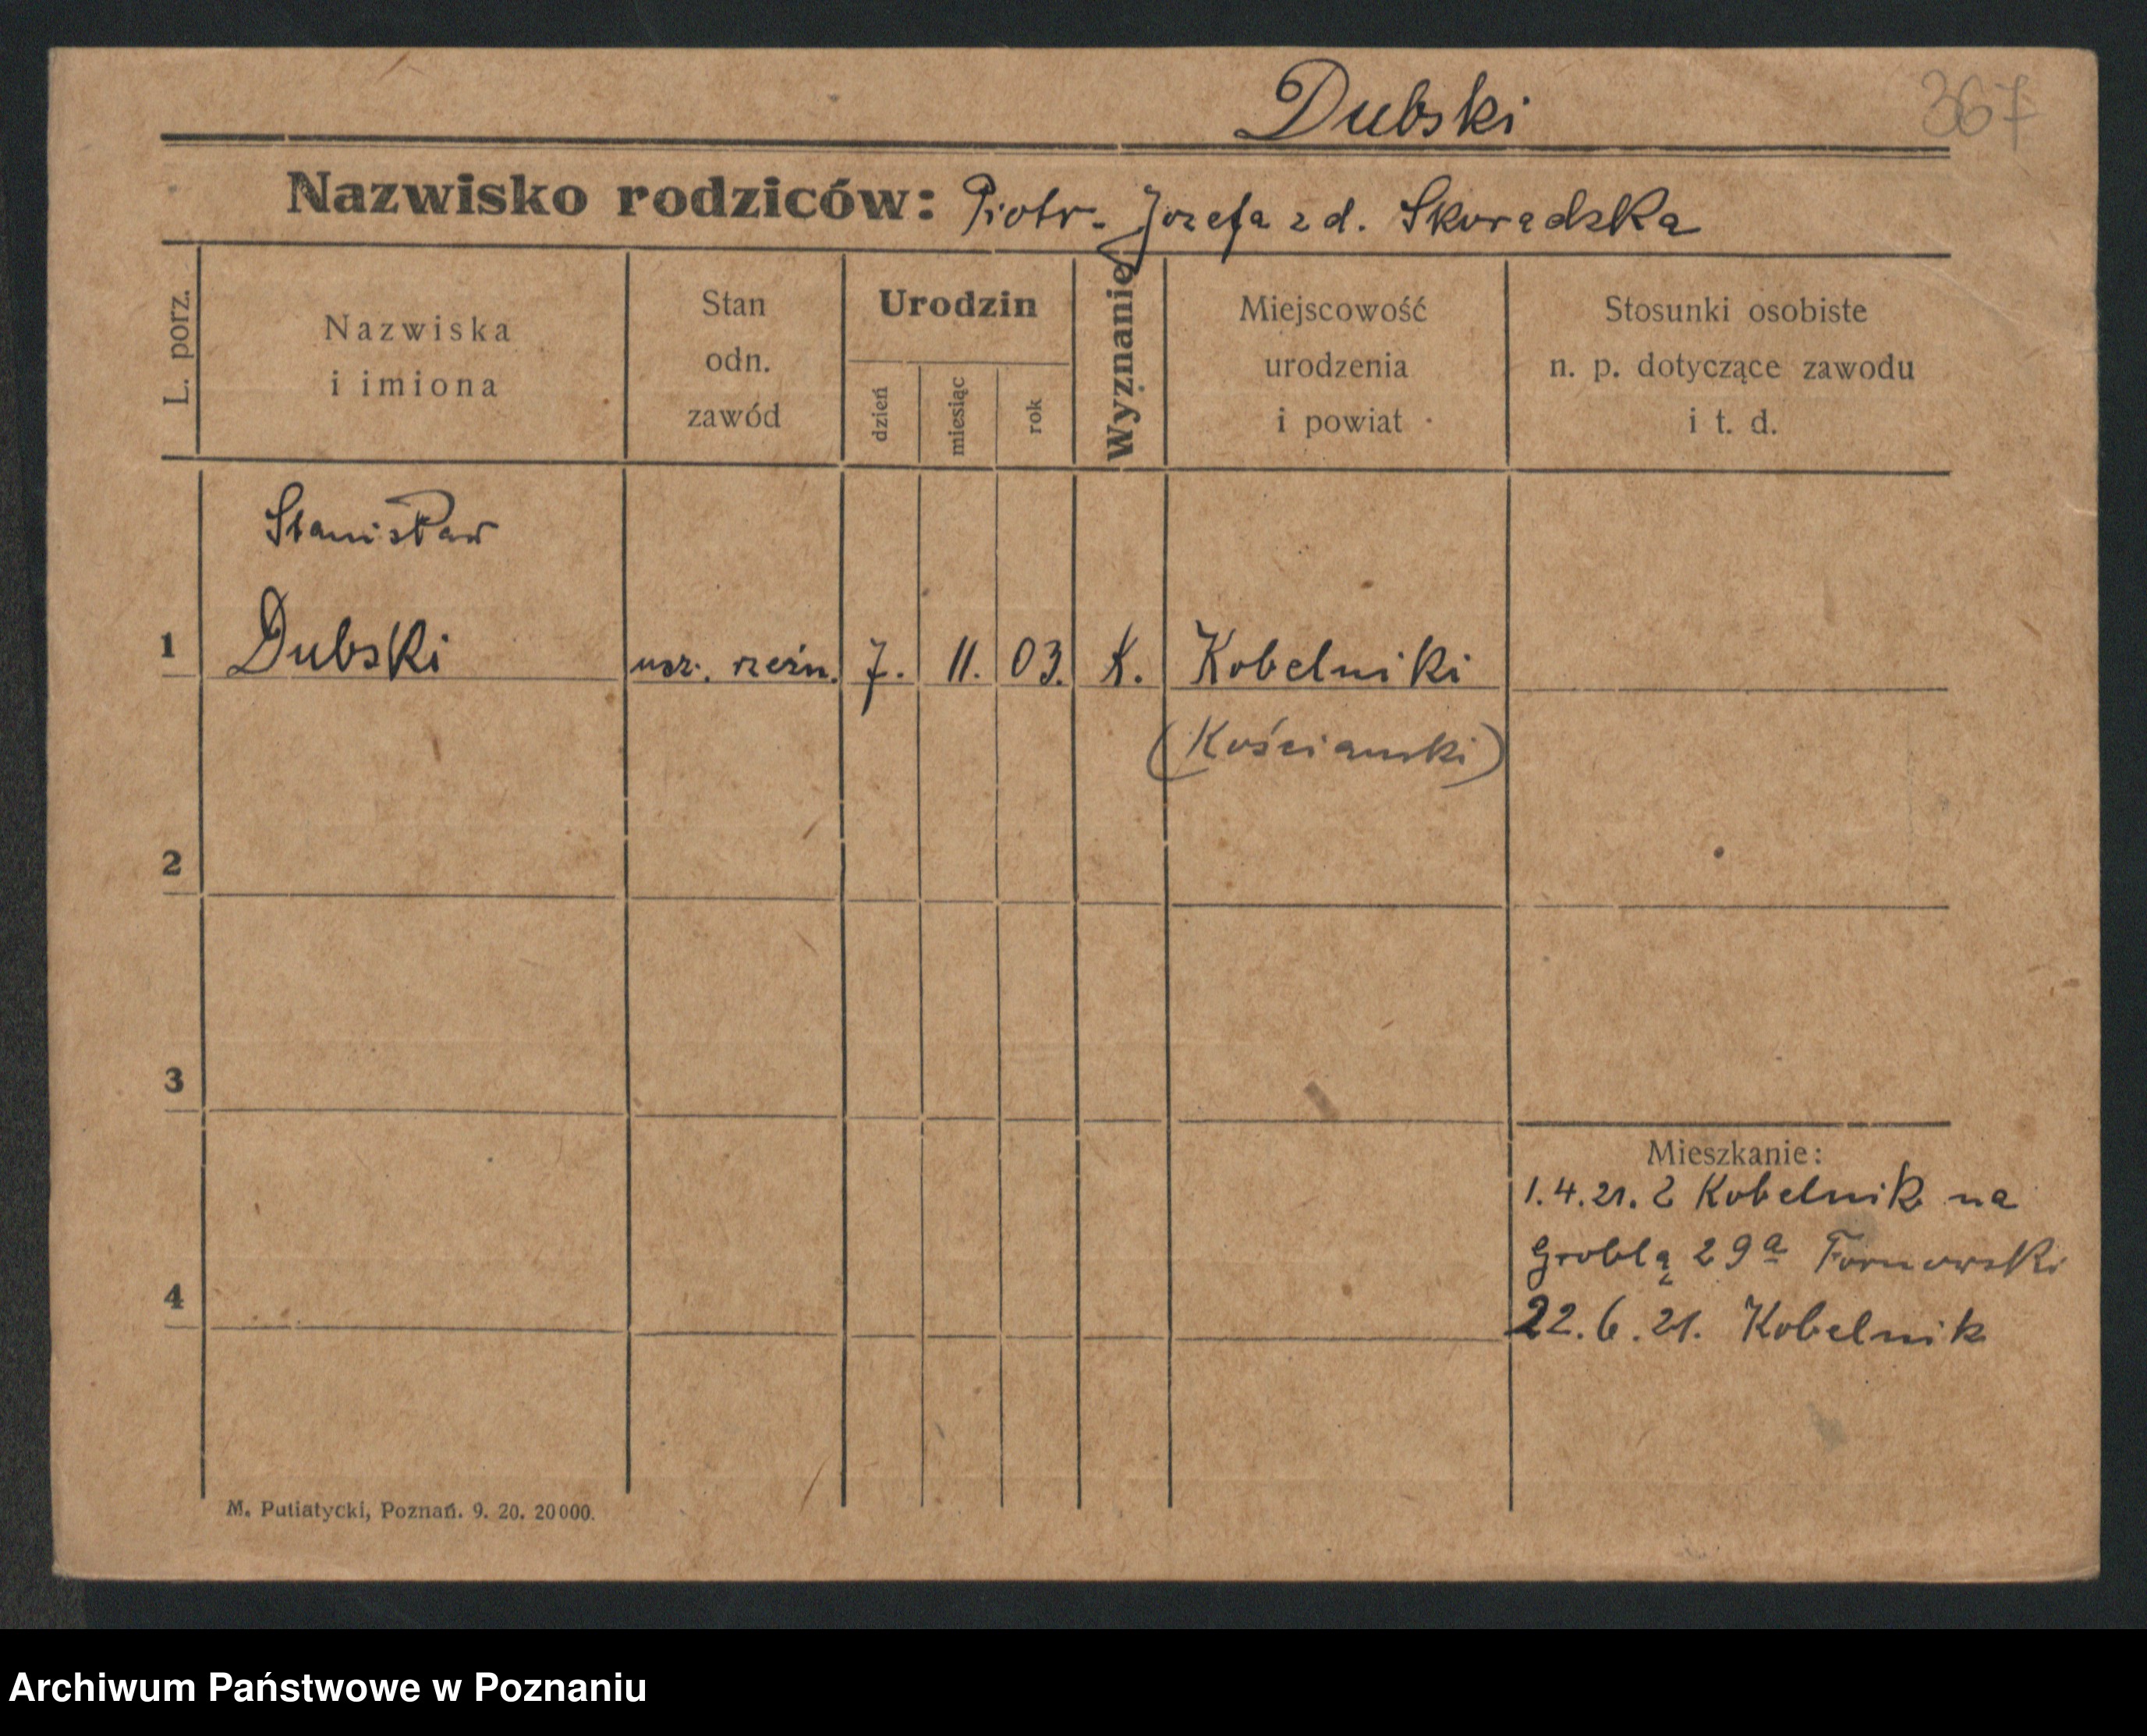 Dubski
367
Nazwisko rodziców: Piotr - Jozefa z d. Skoradska
L. porz.
Nazwiska
i imiona
Stan
odn.
zawód
Urodzin
dzień
miesiąc
rok
Wyznanie
Miejscowość
urodzenia
i powiat
Stosunki osobiste
n. p. dotyczące zawodu
i t. d.
Stanisław
1 Dubski ucz. rzeźn. 7. 11. 03. K. Kobelniki
(Kościanski)
2
3
Mieszkanie:
1.4.21. z Kobelnik na
Groblą 29a
4
22.6.21. Kobelnik
M. Putiatycki, Poznań. 9. 20. 20000.
Archiwum Państwowe w Poznaniu